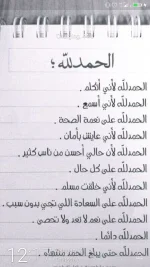 الحمدلله ؛
الحمدلله لأني أتكلم .
الحمدلله لأني أسمع .
الحمدلله على نعمة الصحة .
الحمدلله لأني عايش بأمان .
الحمدلله لأن حالي أحسن من ناس كثير .
الحمدلله على كل حال .
الحمدلله لأني خلقت مسلم .
الحمدلله على السعادة اللي تجي بدون سبب .
الحمدلله على نعم لا تعد ولا تحصى .
الحمدلله دائما .
الحمدلله حتى يبلغ الحمد منتهاه .
12